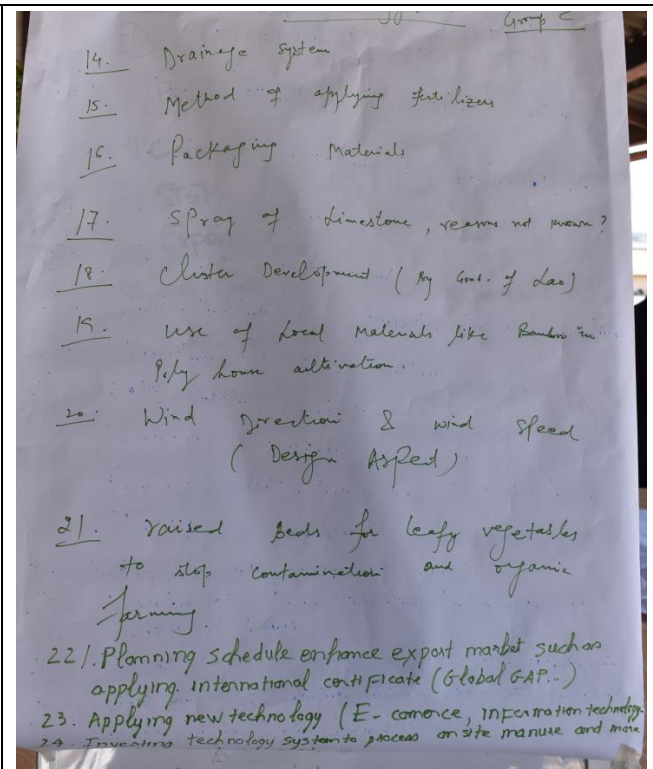 Group C
14. Drainage system
15. Method of applying fertilizers
16. Packaging Materials
17. Spray of Limestone, reasons not known?
18. Cluster Development (By Govt. of Lao)
19. use of Local Materials like Bamboo in
Poly house cultivation.
20. Wind Direction & wind speed
(Design Aspect)
21. raised beds for leafy vegetables
to stop contamination and organic
farming.
22/. Planning schedule enhance export market such as
applying international certificate (Global GAP...)
23. Applying new technology (E-comerce, information technology
24. Investing technology system to process on site manure and more